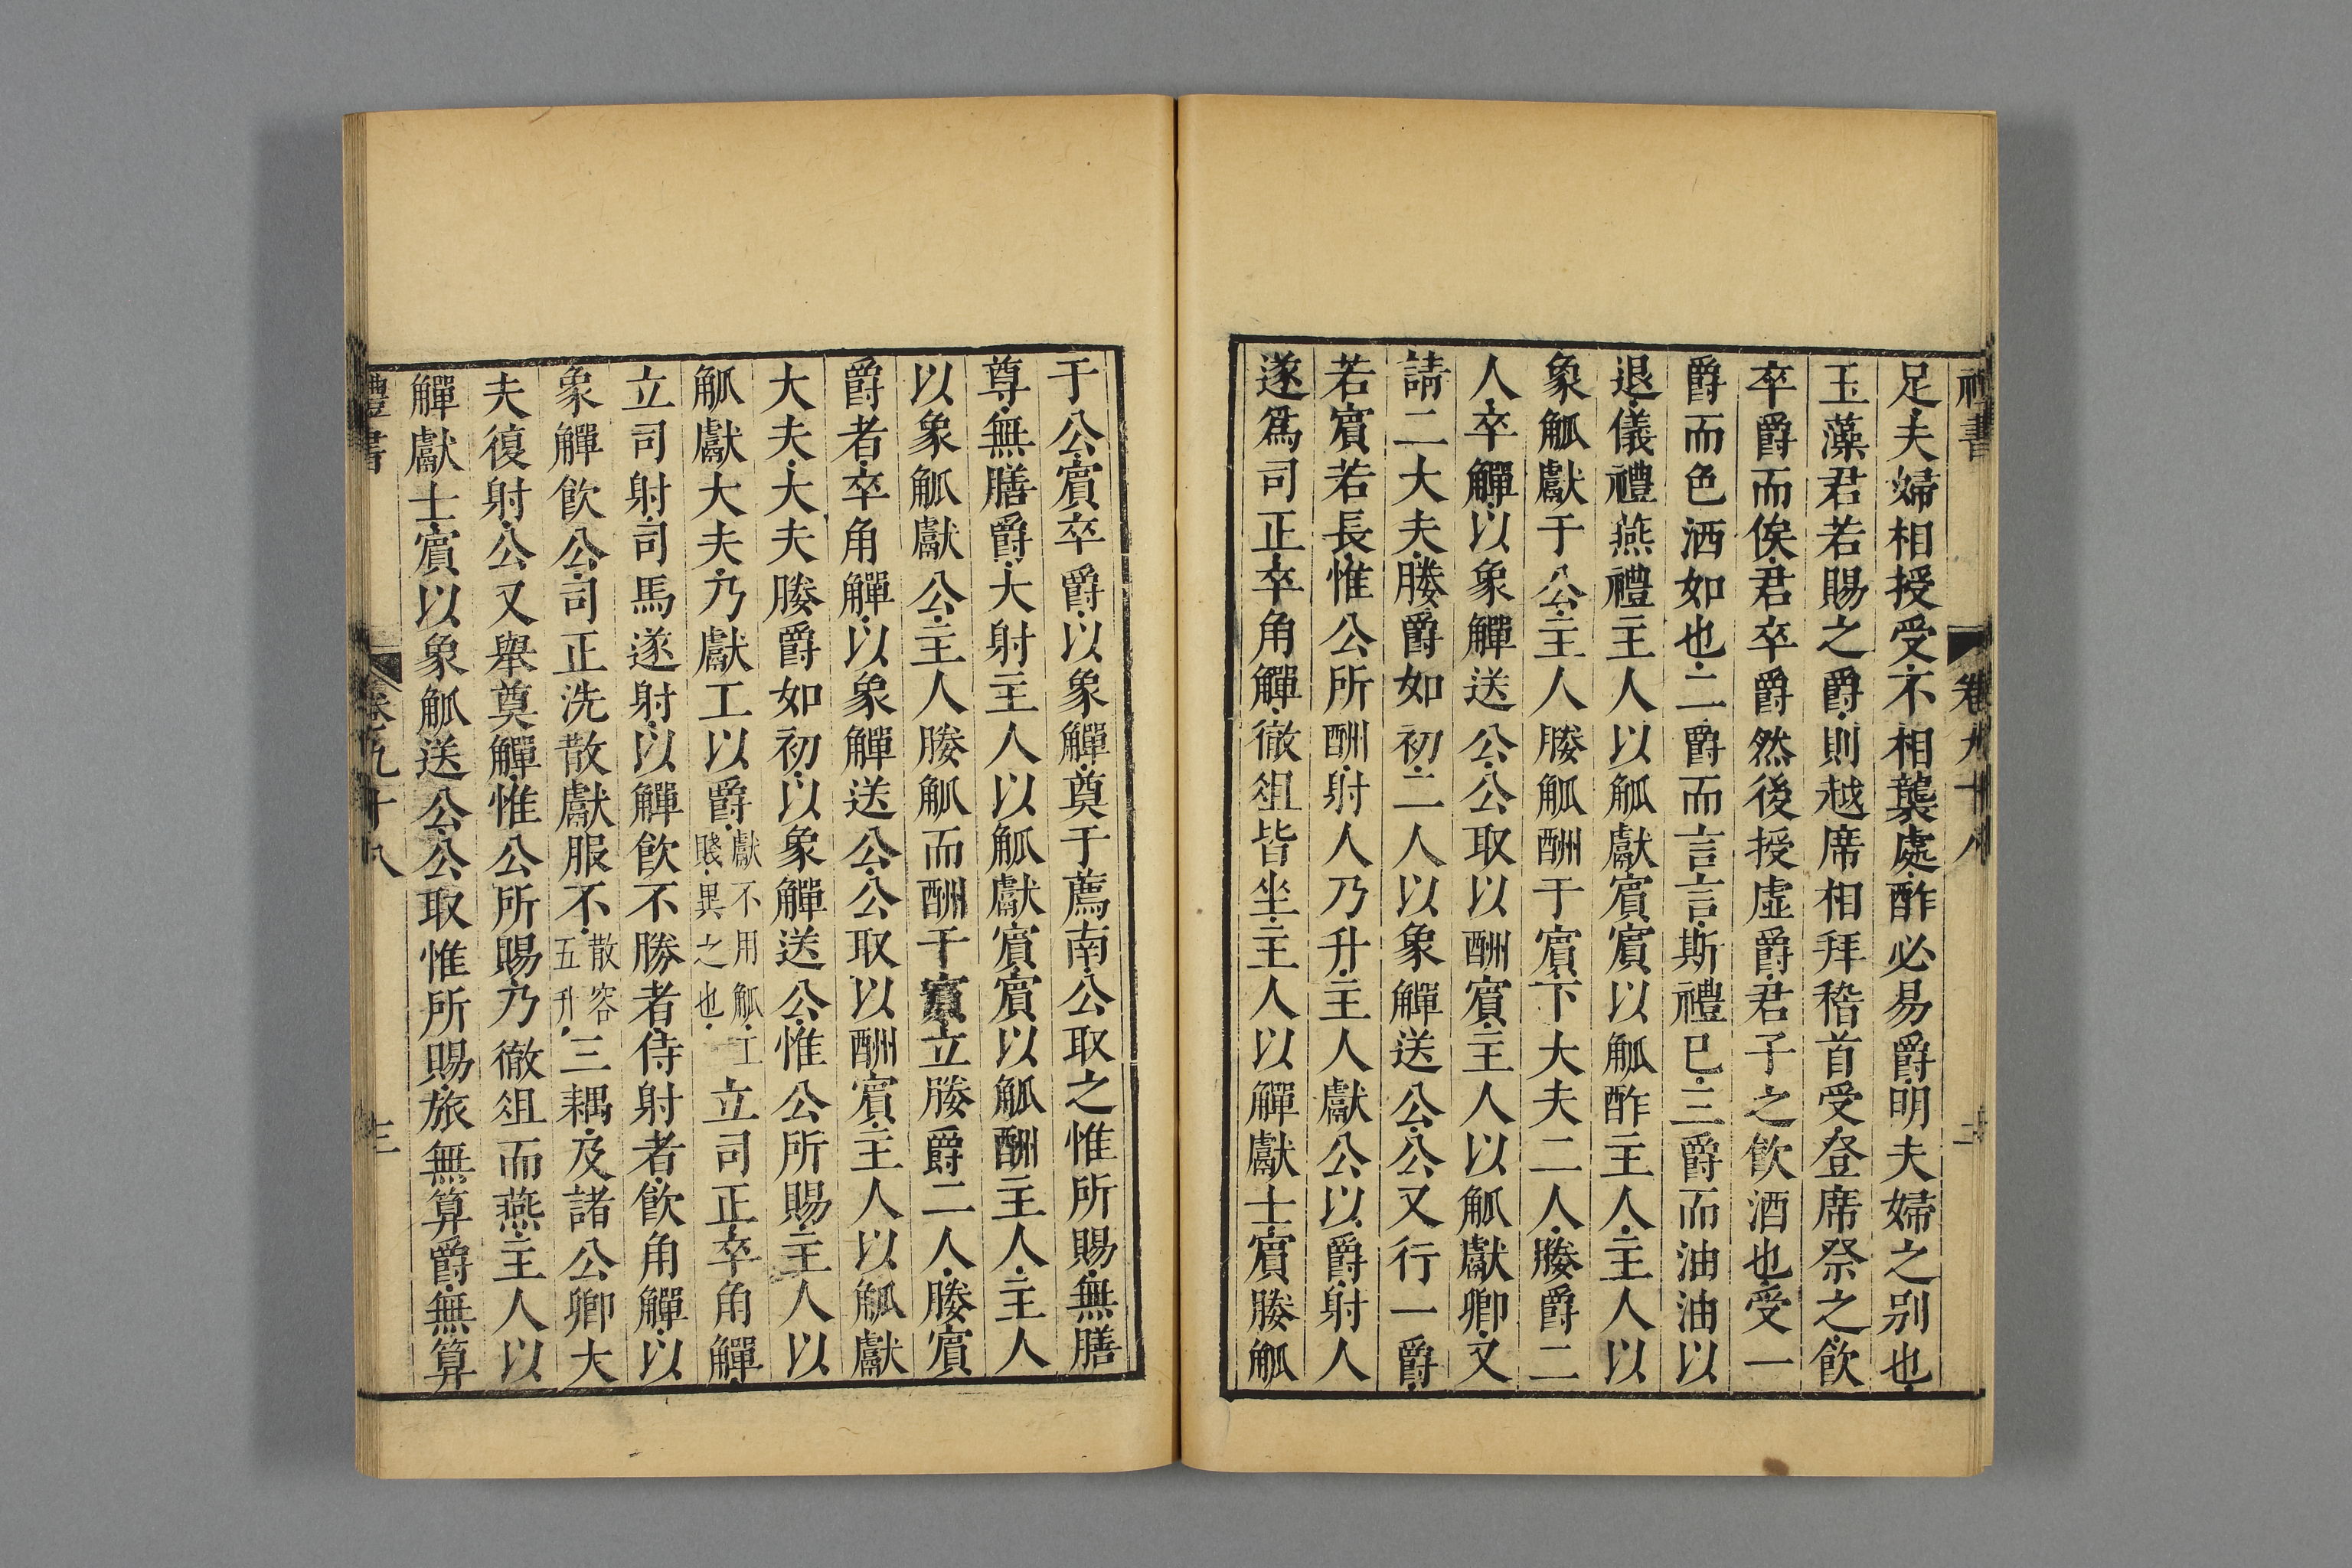 足夫婦相授受不相襲處酢必易爵明夫婦之别也
玉藻君若賜之爵則越席相拜稽首受登席祭之飲
卒爵而俟君卒爵然後授虛爵君子之飲酒也受一
爵而色洒如也二爵而言言斯禮已三爵而油油以
退儀禮燕禮主人以觚獻賓賓以觚酢主人主人以
象觚獻于公主人媵觚酬于賓下大夫二人媵爵二
人卒觶以象觶送公公取以酬賓主人以觚獻卿又
請二大夫媵爵如初二人以象觶送公公又行一爵
若賓若長惟公所酬射人乃升主人獻公以爵射人
遂爲司正卒角觶徹俎皆坐主人以觶獻士賓媵觚
于公賓卒爵以象觶奠于薦南公取之惟所賜無膳
尊無膳爵大射主人以觚獻賓賓以觚酬主人主人
以象觚獻公主人媵觚而酬于賓立媵爵二人媵賓
爵者卒角觶以象觶送公公取以酬賓主人以觚獻
大夫大夫媵爵如初以象觶送公惟公所賜主人以
觚獻大夫乃獻工以爵獻不用觚工賤異之也立司正卒角觶
立司射司馬遂射以觶飲不勝者侍射者飲角觶以
象觶飲公司正洗散獻服不散容五升三耦及諸公卿大
夫復射公又舉奠觶惟公所賜乃徹俎而燕主人以
觶獻士賓以象觚送公公取惟所賜旅無算爵無算
禮書
卷九十八